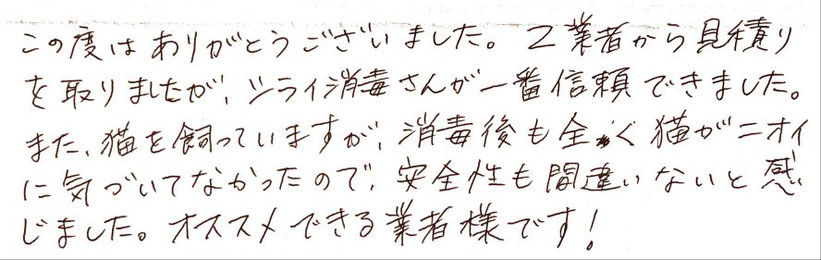 この度はありがとうございました。2業者から見積り
を取りましたが、シライ消毒さんが一番信頼できました。
また、猫を飼っていますが、消毒後も全く猫がニオイ
に気づいてなかったので、安全性も間違いないと感
じました。オススメできる業者様です！